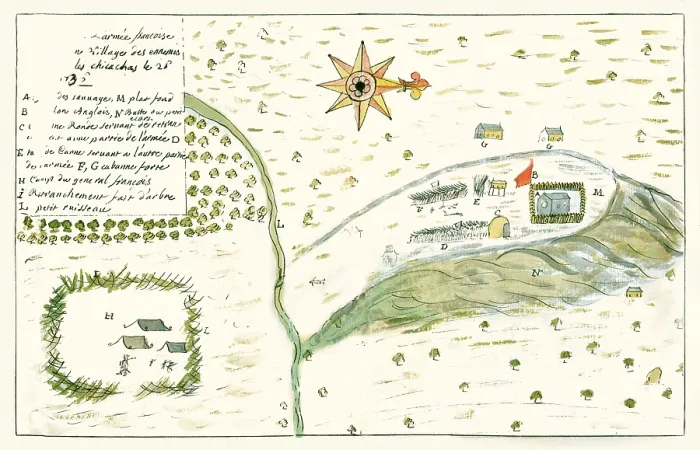 L'armée francoise
ne Villages des ennemis
les chicachas le 26
173
A des sauvage, M plat fond
B lon Anglois, N Buttes
C ne Ronde servant de retran
a une partie de l'armée D
E de Canne servant a l'autre partie
de l'armée F, G cabanne forte
H Camp du general francois
I Retranchement fait d'arbre
L petit ruisseau
G G
B
A M
F E
C
D
L
N
I
H
L